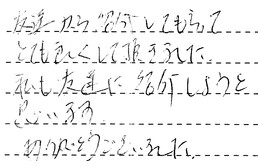 友達から紹介してもらって
とても良くして頂きました。
私も友達に紹介しようと
思います。
ありがとうございました。